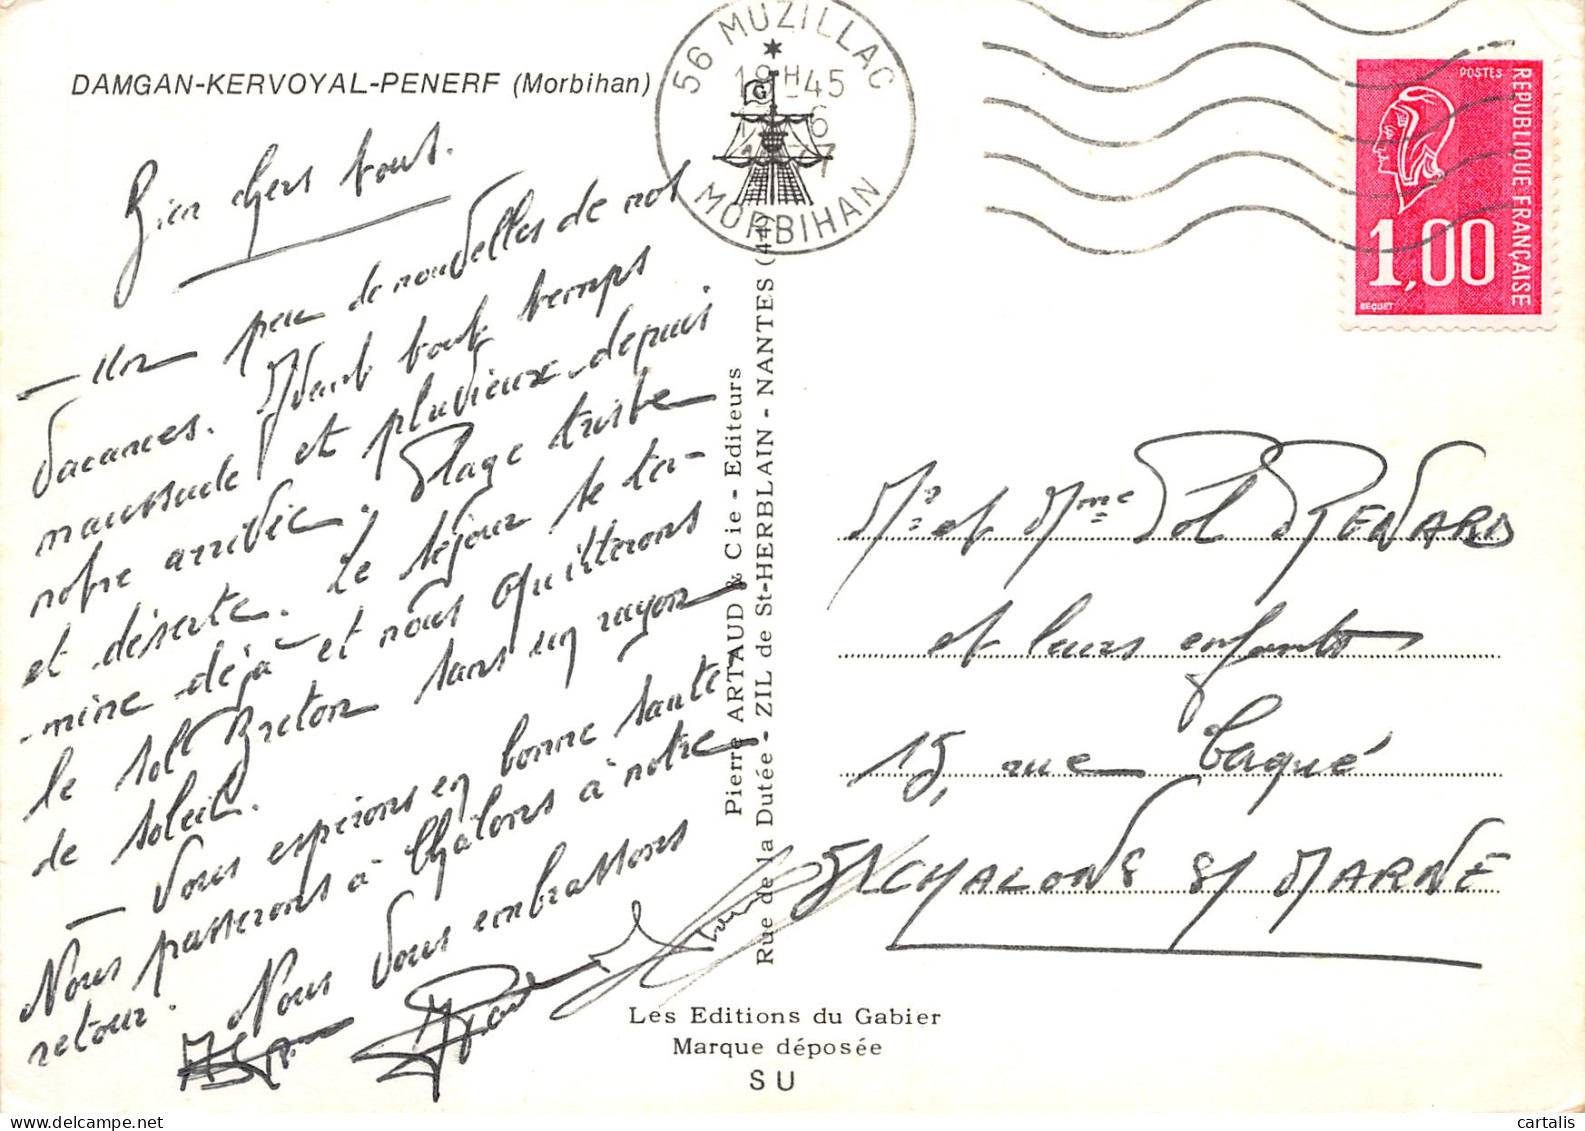 DAMGAN-KERVOYAL-PENERF (Morbihan)
56 MUZILLAC
18H45
6
MORBIHAN
G
POSTES
REPUBLIQUE FRANÇAISE
1,00
BEQUET
Bien chers tous.
— Un peu de nouvelles de nos
vacances. Avant tout temps
maussade et pluvieux depuis
notre arrivée. Plage triste
et déserte. Le séjour se ter-
-mine déjà et nous quitterons
le sol Breton sans un rayon
de soleil.
— Vous espérons en bonne santé
Nous passerons à Châlons à notre
retour. Nous vous embrassons
Pierre ARTAUD & Cie - Editeurs
Rue de la Dutée - ZIL de St-HERBLAIN - NANTES (44)
Mr et Mme Pol RENARD
et leurs enfants
15, rue Caqué
51 CHALONS S/ MARNE
Les Editions du Gabier
Marque déposée
SU
cartalis